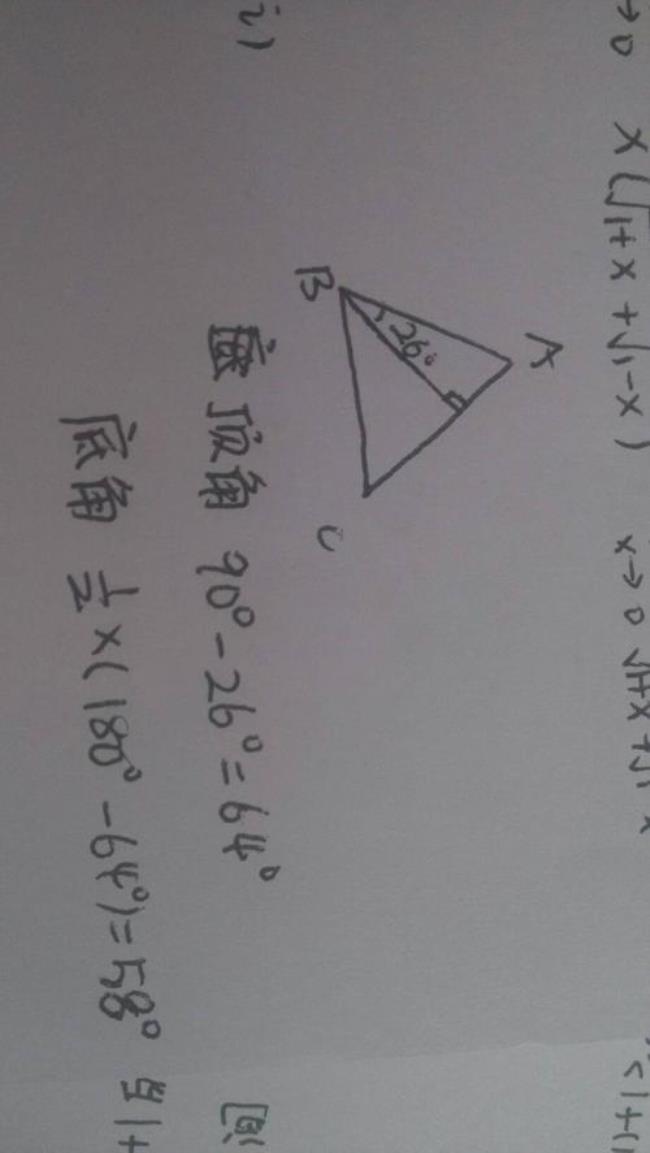 →0 x(√1+x+√1-x) x→0 √1+x+√1
<1+1
i)
A
B
26°
C
顶角 90°-26°=64°
底角 ½×(180°-64°)=58°